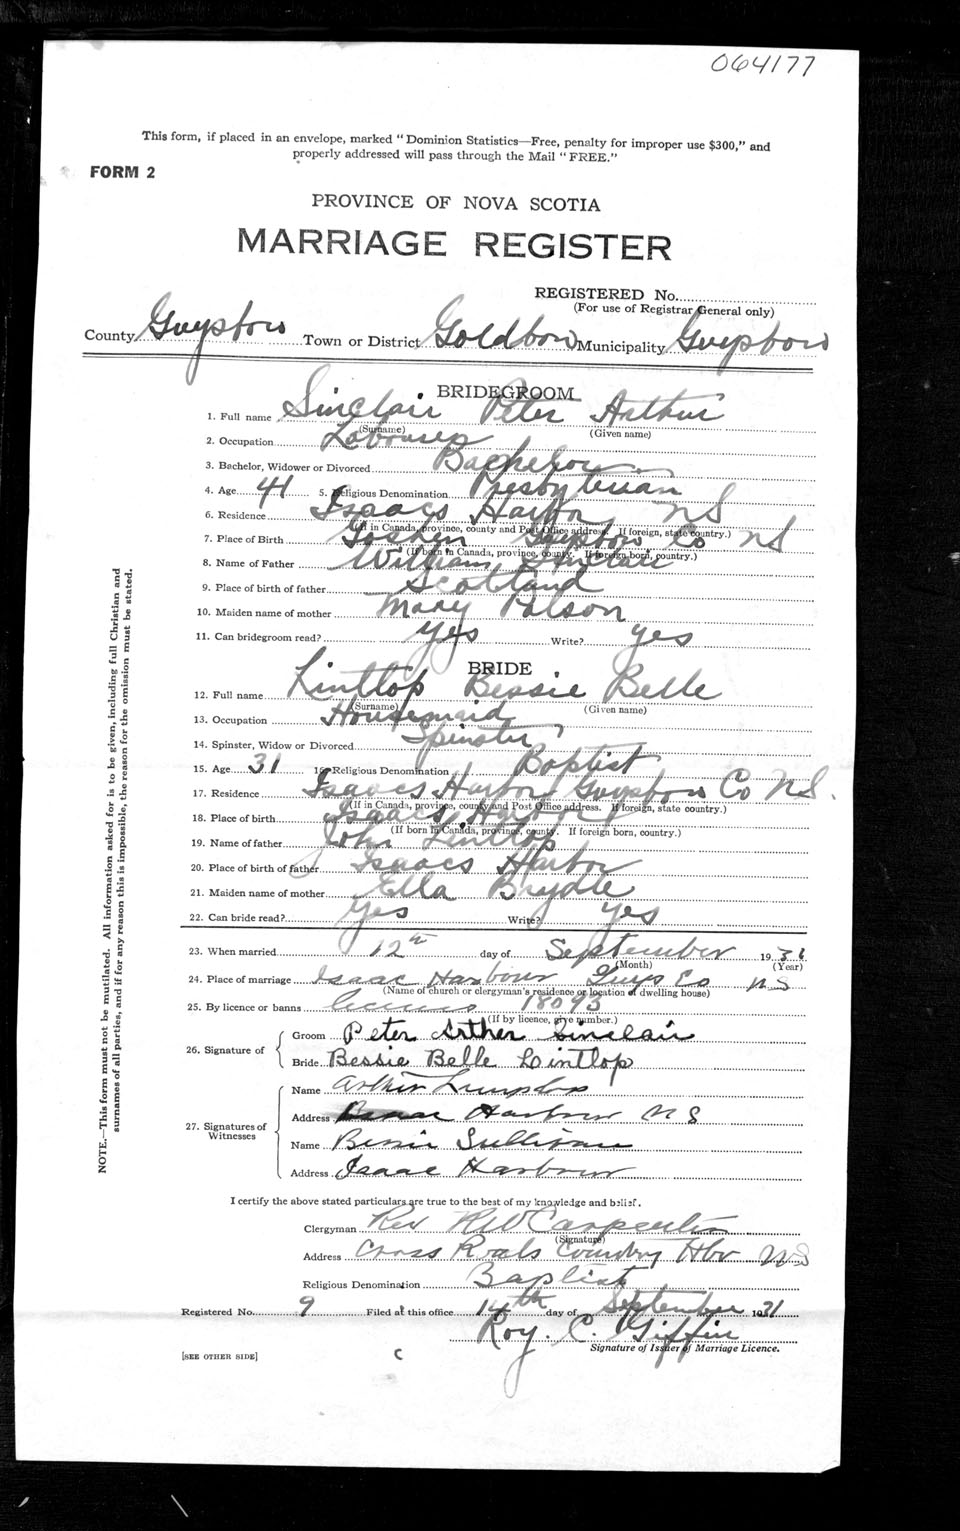 064177
This form, if placed in an envelope, marked “Dominion Statistics—Free, penalty for improper use $300,” and
properly addressed will pass through the Mail “FREE.”
FORM 2
PROVINCE OF NOVA SCOTIA
MARRIAGE REGISTER
REGISTERED No.
(For use of Registrar General only)
County Guysboro Town or District Goldboro Municipality Guysboro
BRIDEGROOM
1. Full name Sinclair Peter Arthur
(Surname) (Given name)
2. Occupation
3. Bachelor, Widower or Divorced Bachelor
4. Age 41 5. Religious Denomination Presbyterian
6. Residence Isaacs Harbor NS
(If in Canada, province, county and Post Office address. If foreign, state country.)
7. Place of Birth Goshen Guysboro Co NS
(If born in Canada, province, county. If foreign born, country.)
8. Name of Father William Sinclair
9. Place of birth of father Scotland
10. Maiden name of mother Mary Polson
11. Can bridegroom read? yes Write? yes
BRIDE
12. Full name Lintlop Bessie Belle
(Surname) (Given name)
13. Occupation Housemaid
14. Spinster, Widow or Divorced Spinster
15. Age 31 16. Religious Denomination Baptist
17. Residence Isaacs Harbor Guysboro Co NS.
(If in Canada, province, county and Post Office address. If foreign, state country.)
18. Place of birth Isaacs Harbor
(If born in Canada, province, county. If foreign born, country.)
19. Name of father John Lintlop
20. Place of birth of father Isaacs Harbor
21. Maiden name of mother Ella
22. Can bride read? yes Write? yes
23. When married 12th day of September 193
(Month) (Year)
24. Place of marriage Isaac Harbour Guys Co NS
(Name of church or clergyman's residence or location of dwelling house)
25. By licence or banns licence 18093
(If by licence, give number.)
26. Signature of
Groom Peter Arther Sinclair
Bride Bessie Belle Lintlop
27. Signatures of Witnesses
Name Arthur
Address Harbour NS
Name Bessie Sullivan
Address Isaac Harbour
I certify the above stated particulars are true to the best of my knowledge and belief.
Clergyman Rev RW Carpenter
(Signature)
Address Cross Roads Country Hbr NS
Religious Denomination Baptist
Registered No. 9 Filed at this office 14th day of September 1931
Roy. C. Giffin
Signature of Issuer of Marriage Licence.
[SEE OTHER SIDE] C
NOTE.—This form must not be mutilated. All information asked for is to be given, including full Christian and
surnames of all parties, and if for any reason this is impossible, the reason for the omission must be stated.